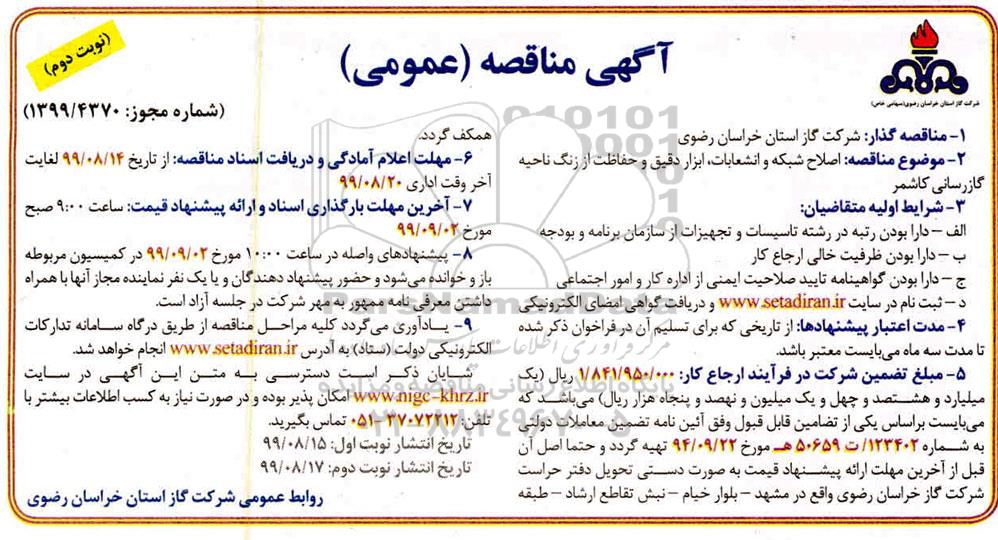 (نوبت دوم)
آگهی مناقصه (عمومی)
شرکت گاز استان خراسان رضوی(سهامی خاص)
(شماره مجوز: ۱۳۹۹/۴۳۷۰)
۱- مناقصه گذار: شرکت گاز استان خراسان رضوی
۲- موضوع مناقصه: اصلاح شبکه و انشعابات، ابزار دقیق و حفاظت از زنگ ناحیه
گازرسانی کاشمر
۳- شرایط اولیه متقاضیان:
الف – دارا بودن رتبه در رشته تاسیسات و تجهیزات از سازمان برنامه و بودجه
ب – دارا بودن ظرفیت خالی ارجاع کار
ج – دارا بودن گواهینامه تایید صلاحیت ایمنی از اداره کار و امور اجتماعی
د – ثبت نام در سایت www.setadiran.ir و دریافت گواهی امضای الکترونیکی
۴- مدت اعتبار پیشنهادها: از تاریخی که برای تسلیم آن در فراخوان ذکر شده
تا مدت سه ماه می‌بایست معتبر باشد.
۵- مبلغ تضمین شرکت در فرآیند ارجاع کار: ۱/۸۴۱/۹۵۰/۰۰۰ ریال (یک
میلیارد و هشتصد و چهل و یک میلیون و نهصد و پنجاه هزار ریال) می‌باشد که
می‌بایست براساس یکی از تضامین قابل قبول وفق آئین نامه تضمین معاملات دولتی
به شماره ۱۲۳۴۰۲/ ت ۵۰۶۵۹ هـ مورخ ۹۴/۰۹/۲۲ تهیه گردد و حتما اصل آن
قبل از آخرین مهلت ارائه پیشنهاد قیمت به صورت دستی تحویل دفتر حراست
شرکت گاز خراسان رضوی واقع در مشهد – بلوار خیام – نبش تقاطع ارشاد – طبقه
همکف گردد.
۶- مهلت اعلام آمادگی و دریافت اسناد مناقصه: از تاریخ ۹۹/۰۸/۱۴ لغایت
آخر وقت اداری ۹۹/۰۸/۲۰
۷- آخرین مهلت بارگذاری اسناد و ارائه پیشنهاد قیمت: ساعت ۹:۰۰ صبح
مورخ ۹۹/۰۹/۰۲
۸- پیشنهادهای واصله در ساعت ۱۰:۰۰ مورخ ۹۹/۰۹/۰۲ در کمیسیون مربوطه
باز و خوانده می‌شود و حضور پیشنهاد دهندگان و یا یک نفر نماینده مجاز آنها با همراه
داشتن معرفی نامه ممهور به مهر شرکت در جلسه آزاد است.
۹- یـادآوری می‌گردد کلیه مراحل مناقصه از طریق درگاه سامانه تدارکات
الکترونیکی دولت (ستاد) به آدرس www.setadiran.ir انجام خواهد شد.
شایان ذکر است دسترسی به متن این آگهی در سایت
www.nigc-khrz.ir امکان پذیر بوده و در صورت نیاز به کسب اطلاعات بیشتر با
تلفن: ۳۷۰۷۲۲۱۲-۰۵۱ تماس بگیرید.
تاریخ انتشار نوبت اول: ۹۹/۰۸/۱۵
تاریخ انتشار نوبت دوم: ۹۹/۰۸/۱۷
روابط عمومی شرکت گاز استان خراسان رضوی
ParsNamadData
پایگاه اطلاع رسانی مناقصه و مزایده
۰۲۱-۸۸۳۴۹۶۷۰-۵